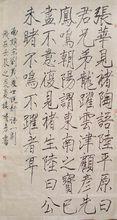 張華見褚陶語陸平原曰
君兄弟龍躍雲津顧彥先
鳳鳴朝陽謂東南之寶已
盡不意復見褚生陸曰公
未睹不鳴不躍者耳
南朝宋劉義慶世說新語